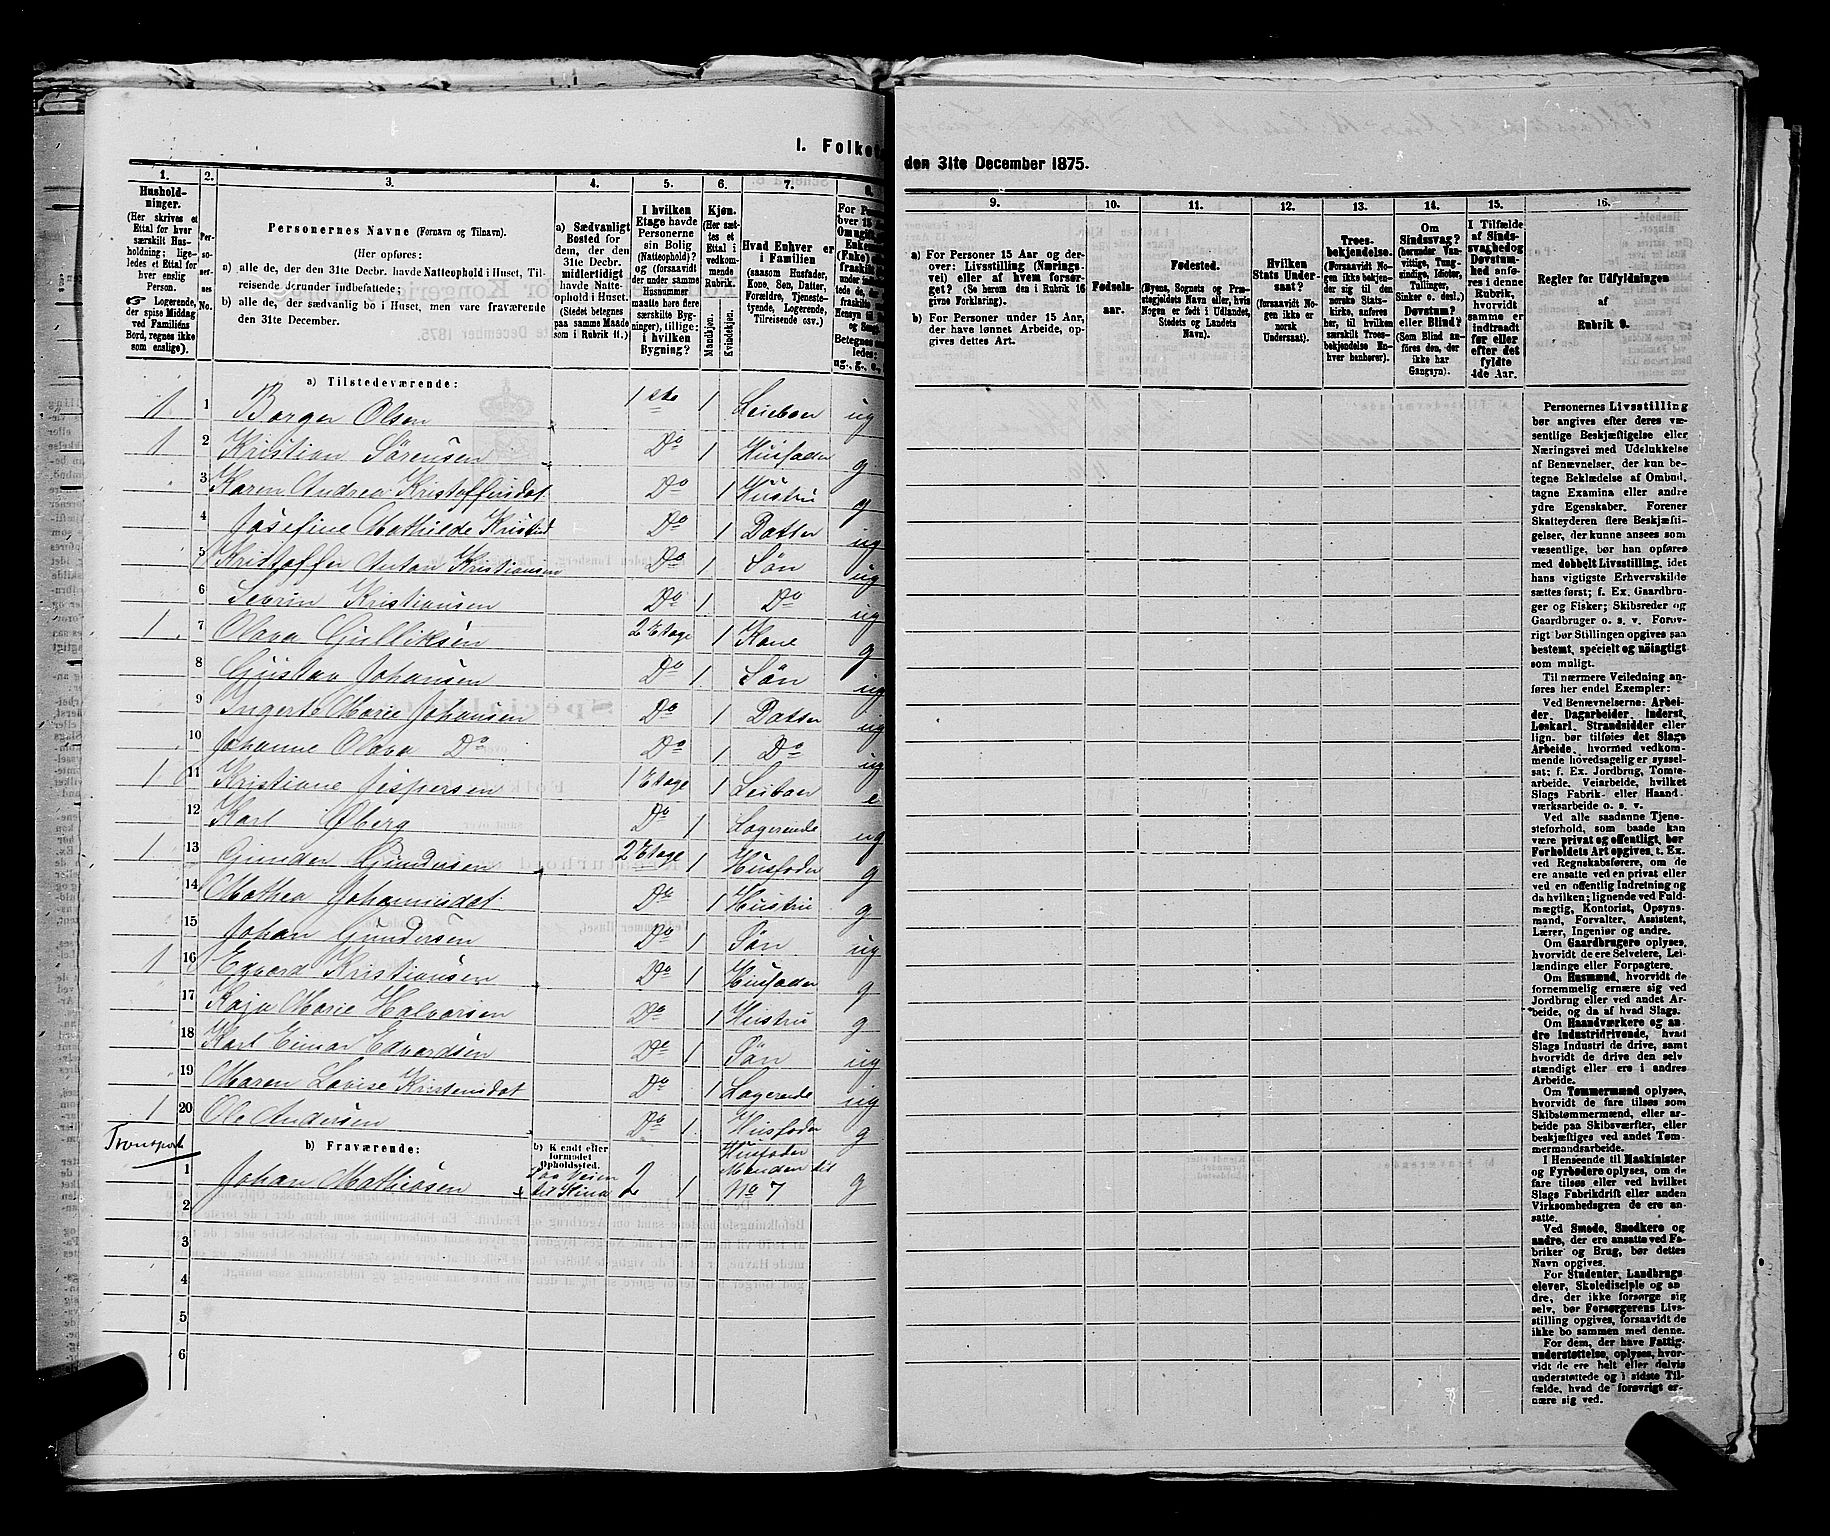 I. Folket
den 31te December 1875.
1.
Hushold-
ninger.
(Her skrives et
Ettal for hver
særskilt Hus-
holdning; li-
geledes et Ettal for
hver enslig
Person.
☞ Logerende,
der spise Middag
ved Familiens
Bord, regnes ikke
som enslige).
2.
Per-
so-
ner-
nes
No.
3.
Personernes Navne (Fornavn og Tilnavn).
(Her opføres:
a) alle de, der den 31te Decbr. havde Natteophold i Huset, Til-
reisende derunder indbefattede;
b) alle de, der sædvanlig bo i Huset, men vare fraværende
den 31te December.
4.
a) Sædvanligt
Bosted for
dem, der den
31te Decbr.
midlertidigt
havde Natte-
ophold i Huset.
(Stedet betegnes
paa samme Maade
som i Rubrik 11.)
5.
I hvilken
Etage havde
Personerne
sin Bolig
(Natteophold)?
og (forsaavidt
der under samme
Husnummer
maatte høre flere
særskilte Byg-
ninger), tillige:
i hvilken
Bygning?
6.
Kjøn.
(Her sæt-
tes et
Ettal i
vedkom-
mende
Rubrik.
Mandkjøn.
Kvindekjøn.
7.
Hvad Enhver er
i Familien
(saasom Husfader,
Kone, Søn, Datter,
Forældre, Tjeneste-
tyende, Logerende,
Tilreisende osv.)
a) Tilstedeværende:
1 1 Borger Olsen 1 ste 1 Leieboer ug
1 2 Kristian Sørensen Do 1 Husfader g
3 Karen Andrea Kristoffersdat Do 1 Hustru g
4 Josefine Mathilde Kristiansd Do 1 Datter ug
5 Kristoffer Anton Kristiansen Do 1 Søn ug
6 Sevrin Kristiansen Do 1 Do ug
1 7 Olava Gulliksen 2 Etage 1 Kone g
8 Gustav Johansen Do 1 Søn ug
9 Ingerta Marie Johansen Do 1 Datter ug
10 Johanne Olava Do Do 1 Do ug
1 11 Kristiane Jispersen 1 Etage 1 Leiboer e
12 Karl Øberg Do 1 Logerende ug
1 13 Gunder Gundersen 2 Etage 1 Husfader g
14 Mathea Johannesdat Do 1 Hustru g
15 Johan Gundersen Do 1 Søn ug
1 16 Edvard Kristiansen Do 1 Husfader g
17 Kaja Marie Halvorsen Do 1 Hustru g
18 Karl Eimar Edvardsen Do 1 Søn ug
19 Maren Lovise Kristensdat Do 1 Logerende ug
1 20 Ole Andersen Do 1 Husfader g
Transport
b) Fraværende:
b) Kjendt eller
formodet
Opholdssted.
1 Johan Mathiesen Paa Veien til Kina 2 1 Husfader Manden til No 7 g
2
3
4
5
6
9.
a) For Personer 15 Aar og der-
over: Livsstilling (Nærings-
vei) eller af hvem forsør-
get? (Se herom den i Rubrik 16
givne Forklaring).
b) For Personer under 15 Aar,
der have lønnet Arbeide, op-
gives dettes Art.
10.
Fødsels-
aar.
11.
Fødested.
(Byens, Sognets og Præ-
stegjeldets Navn eller, hvis
Nogen er født i Udlandet,
Stedets og Landets
Navn).
12.
Hvilken
Stats Under-
saat?
(forsaavidt No-
gen ikke er
norsk
Undersaat).
13.
Troes-
bekjendelse.
(Forsaavidt No-
gen ikke bekjen-
der sig til den
norske Stats-
kirke, anføres
her, til hvilken
særskilt Troes-
bekjendelse En-
hver henhører).
14.
Om
Sindssvag?
(herunder Van-
vittige, Tung-
sindige, Idioter,
Sinker o. desl.)
Døvstum?
eller Blind?
(Som Blind an-
føres den, der
ikke har
Gangsyn).
15.
I Tilfælde
af Sinds-
svaghed og
Døvstum-
hed anfø-
res i denne
Rubrik,
hvorvidt
samme er
indtraadt
før eller
efter det
fyldte
4de Aar.
16.
Regler for Udfyldningen
af
Rubrik 9.
Personernes Livsstilling
bør angives efter deres væ-
sentlige Beskjæftigelse eller
Næringsvei med Udelukkelse
af Benævnelser, der kun be-
tegne Beklædelse af Ombud,
tagne Examina eller andre
ydre Egenskaber. Forener
Skatteyderen flere Beskjæfti-
gelser, der kunne ansees som
væsentlige, bør han opføres
med dobbelt Livsstilling, idet
hans vigtigste Erhvervskilde
sættes først; f. Ex. Gaardbru-
ger og Fisker; Skibsreder og
Gaardbruger o. s. v. Forøv-
rigt bør Stillingen opgives saa
bestemt, specielt og nøiagtigt
som muligt.
Til nærmere Veiledning an-
føres her endel Exempler:
Ved Benævnelserne: Arbei-
der, Dagarbeider, Inderst,
Løskarl, Strandsidder eller
lign. bør tilføies det Slags
Arbeide, hvormed vedkom-
mende hovedsagelig er syssel-
sat; f. Ex. Jordbrug, Tomte-
arbeide, Veiarbeide, hvilket
Slags Fabrik- eller Haand-
værksarbeide o. s. v.
Ved alle saadanne Tjene-
steforhold, som baade kan
være privat og offentligt, bør
Forholdets Art opgives, t. Ex.
ved Regnskabsførere, om de
ere ansatte ved en privat eller
ved en offentlig Indretning og
da hvilken; lignende ved Fuld-
mægtig, Kontorist, Opsyns-
mand, Forvalter, Assistent,
Lærer, Ingeniør og andre.
Om Gaardbrugere oplyses,
hvorvidt de ere Selveiere, Lei-
lændinge eller Forpagtere.
Om Husmænd, hvorvidt de
fornemmelig ernære sig ved
Jordbrug eller ved andet Ar-
beide, og da af hvad Slags.
Om Haandværkere og an-
dre Industridrivende, hvad
Slags Industri de drive, samt
hvorvidt de drive den selv-
stændigt eller ere i andres
Arbeide.
Om Tømmermænd oplyses,
hvorvidt de fare tilsøs som
Skibstømmermænd, eller ar-
beide paa Skibsværfter, eller
beskjæftiges ved andet Tøm-
mermandsarbeide.
I Henseende til Maskinister
og Fyrbødere oplyses, om de
fare tilsøs eller ved hvilket
Slags Fabrikdrift eller anden
Virksomhedsgren de ere an-
satte.
Ved Smede, Snedkere og
andre, der ere ansatte ved Fa-
briker og Brug, bør dettes
Navn opgives.
For Studenter, Landbrugs-
elever, Skoledisciple og an-
dre, der ikke forsørge sig
selv, bør Forsørgerens Livs-
stilling opgives, forsaavidt de
ikke bo sammen med denne.
For dem, der have Fattig-
understøttelse, oplyses, hvor-
vidt de ere helt eller delvis
understøttede og i sidste Til-
fælde, hvad de forøvrigt er-
nære sig ved.